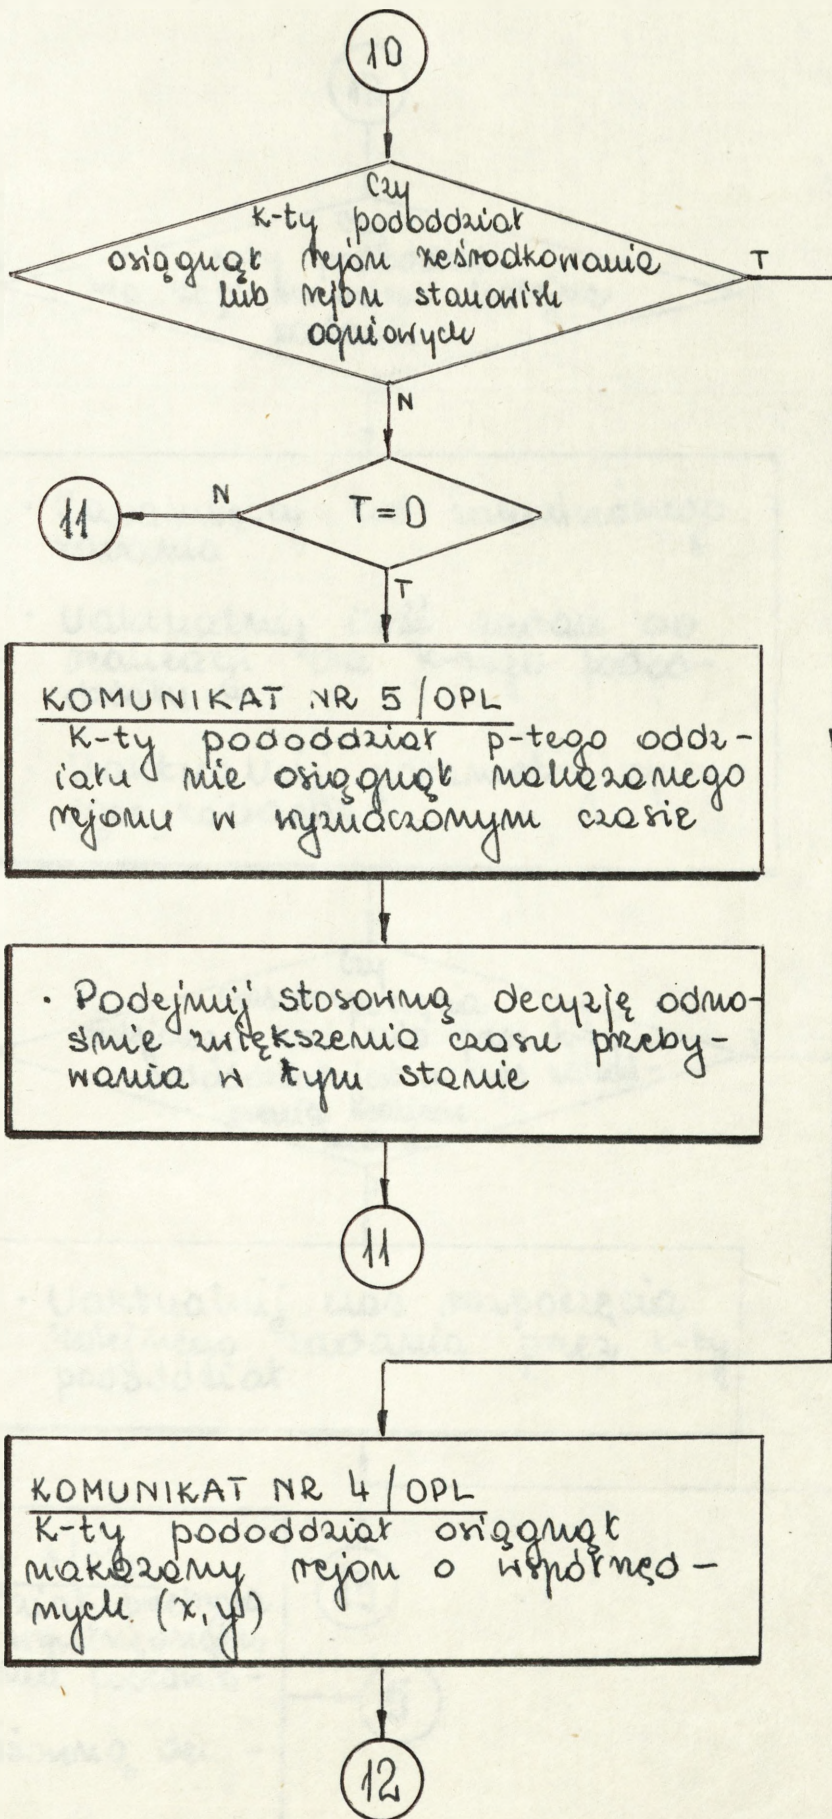 10
Czy
K-ty pododdział
osiągnął rejon ześrodkowania
lub rejon stanowisk
ogniowych
T
N
N
T=0
11
T
KOMUNIKAT NR 5/OPL
K-ty pododdział p-tego oddz-
iału nie osiągnął nakazanego
rejonu w wyznaczonym czasie
· Podejmij stosowną decyzję odno-
śnie zwiększenia czasu przeby-
wania w tym stanie
11
KOMUNIKAT NR 4/OPL
K-ty pododdział osiągnął
nakazany rejon o współrzęd-
nych (x, y)
12